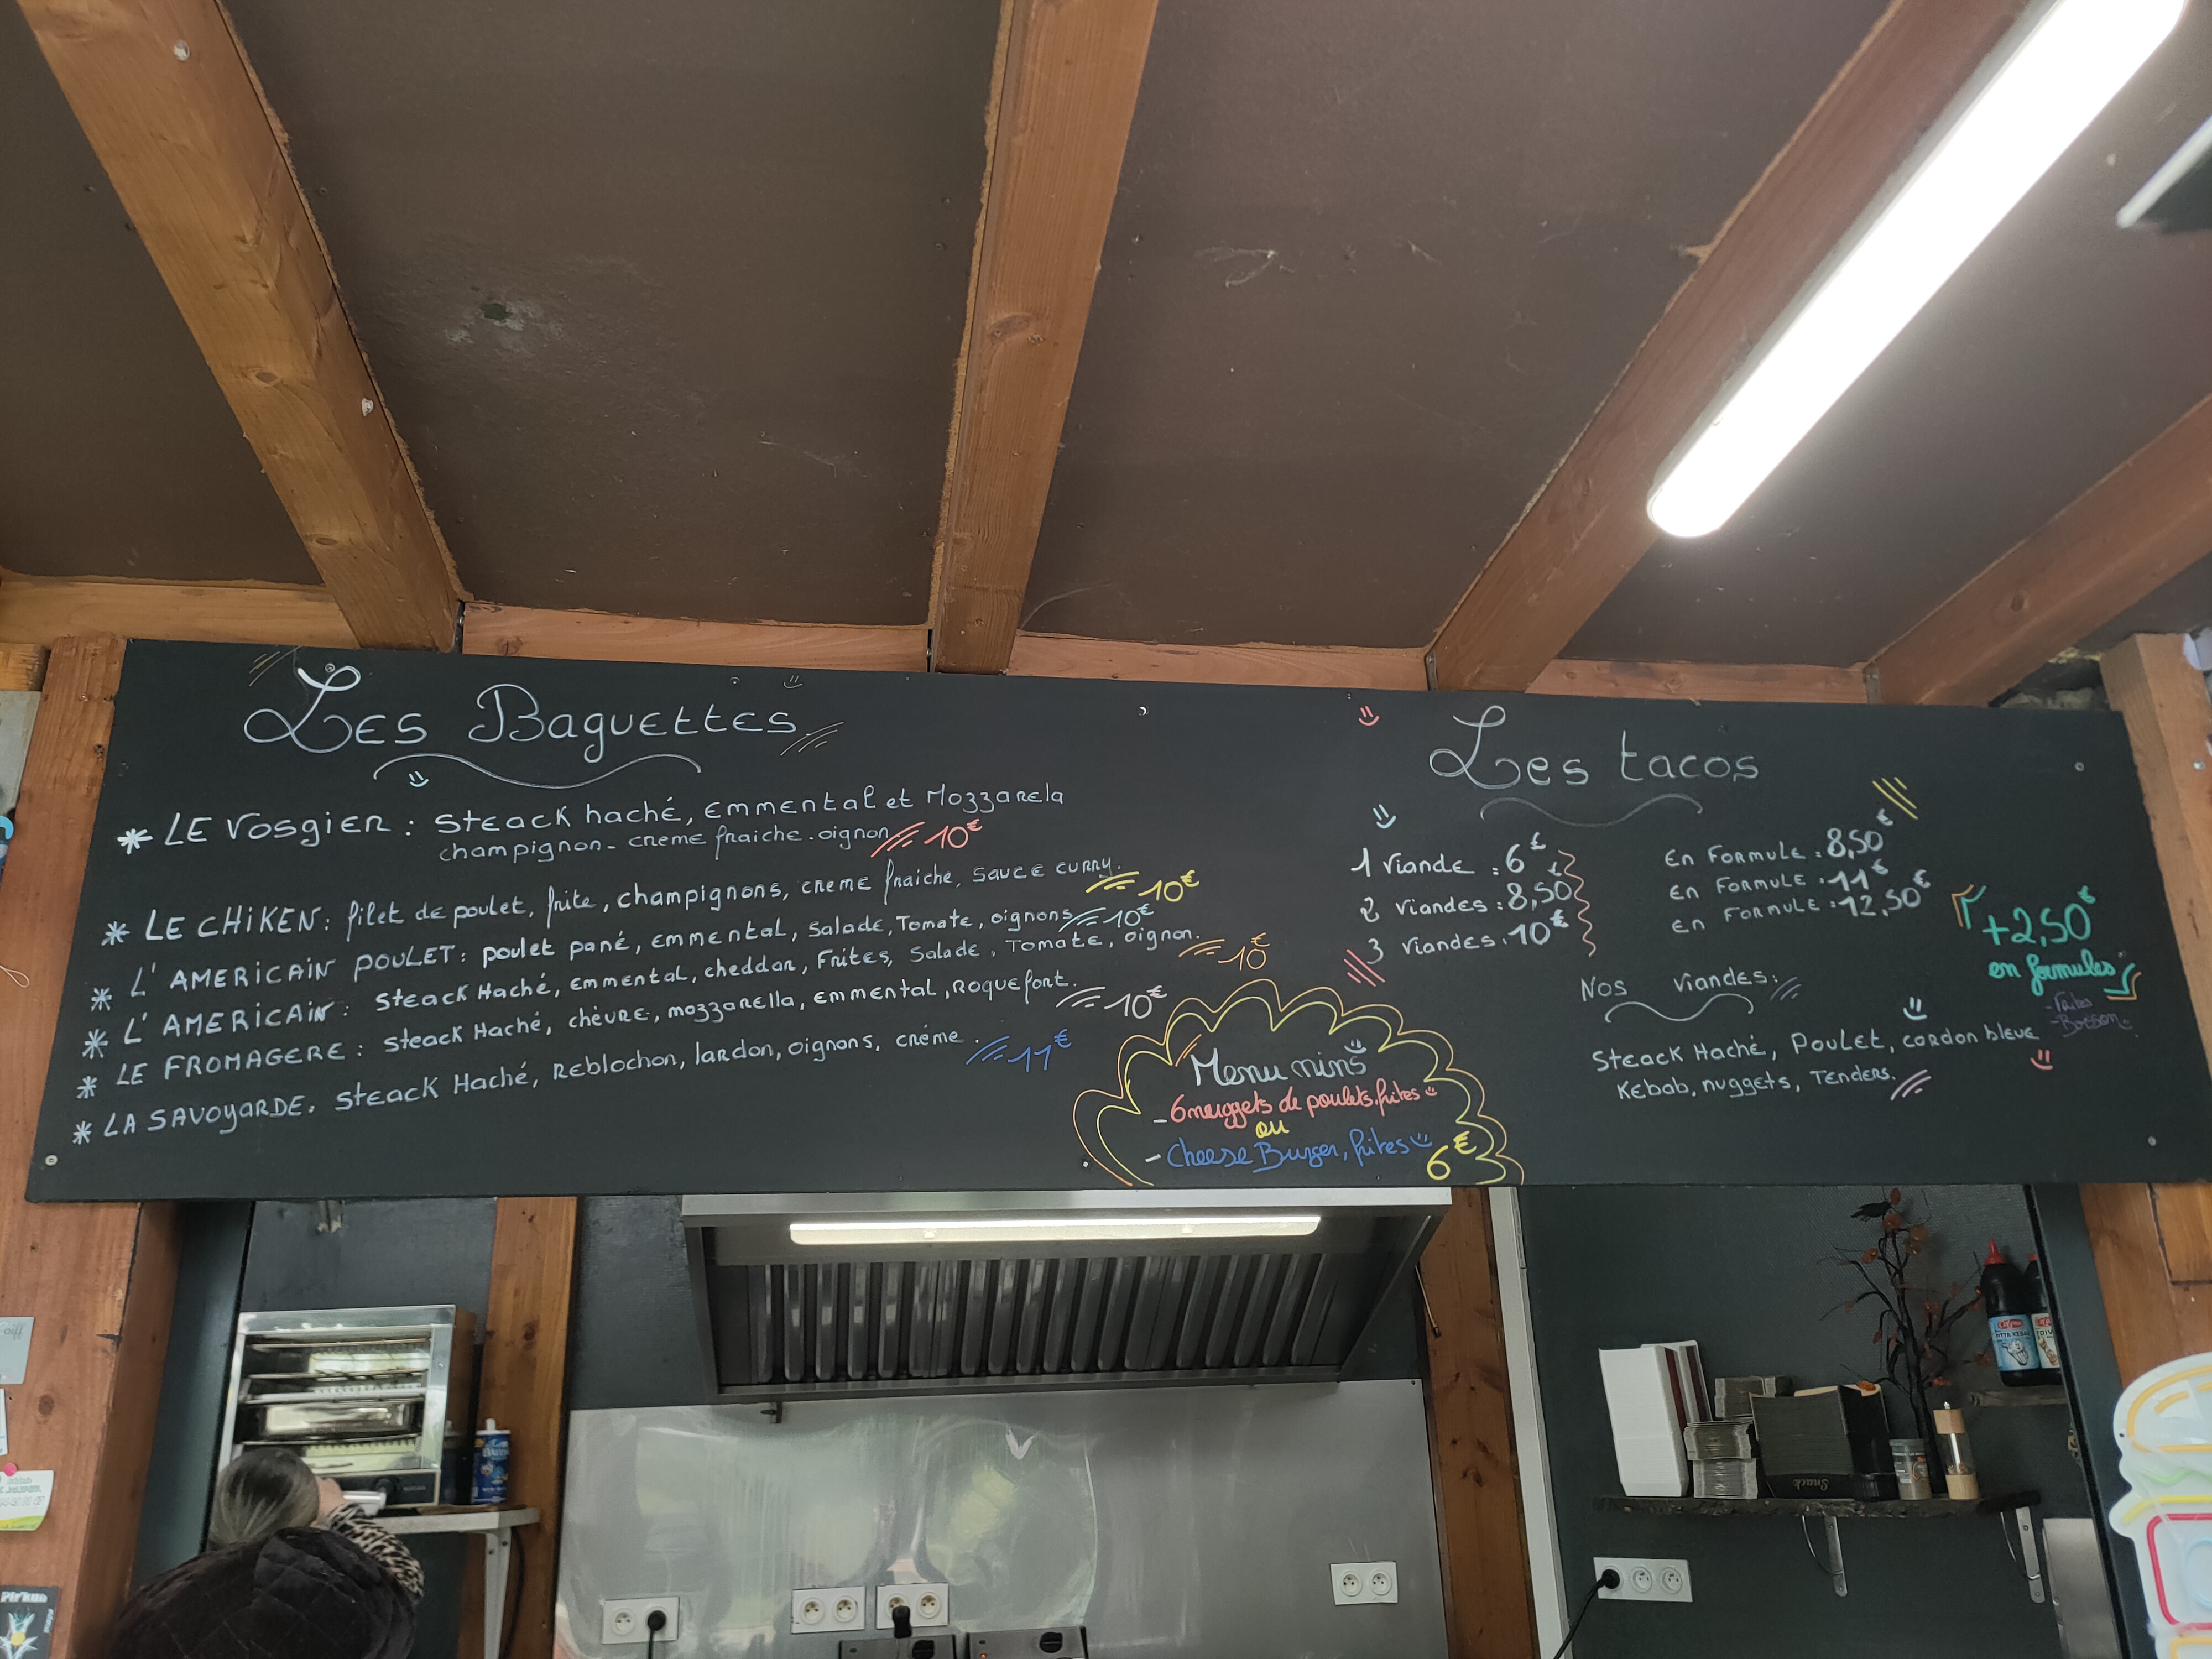 Les Baguettes
* LE VOSGIER : STEACK haché, Emmental et Mozzarela
champignon - creme fraiche . oignon 10€
* LE CHIKEN : filet de poulet, frite, champignons, creme fraiche, sauce curry. 10€
* L'AMERICAIN POULET : poulet pané, emmental, salade, Tomate, oignons 10€
* L'AMERICAIN : STEACK Haché, Emmental, cheddar, Frites, Salade, Tomate, oignon. 10€
* LE FROMAGERE : STEACK Haché, chèvre, mozzarella, emmental, roquefort. 10€
* LA SAVOYARDE. STEACK Haché, Reblochon, lardon, oignons, crème. 11€
Menu mins
- 6 nuggets de poulets, frites
ou
- Cheese Burger, frites
6€
Les tacos
1 Viande : 6€
2 Viandes : 8,50
3 Viandes. 10€
En FORMULE : 8,50€
En FORMULE : 11€
en FORMULE : 12,50€
+2,50€
en formules
- Frites
- Boisson
Nos Viandes :
STEACK Haché, POULET, cordon bleue
KEBAB, nuggets, TENDERS.
Snack